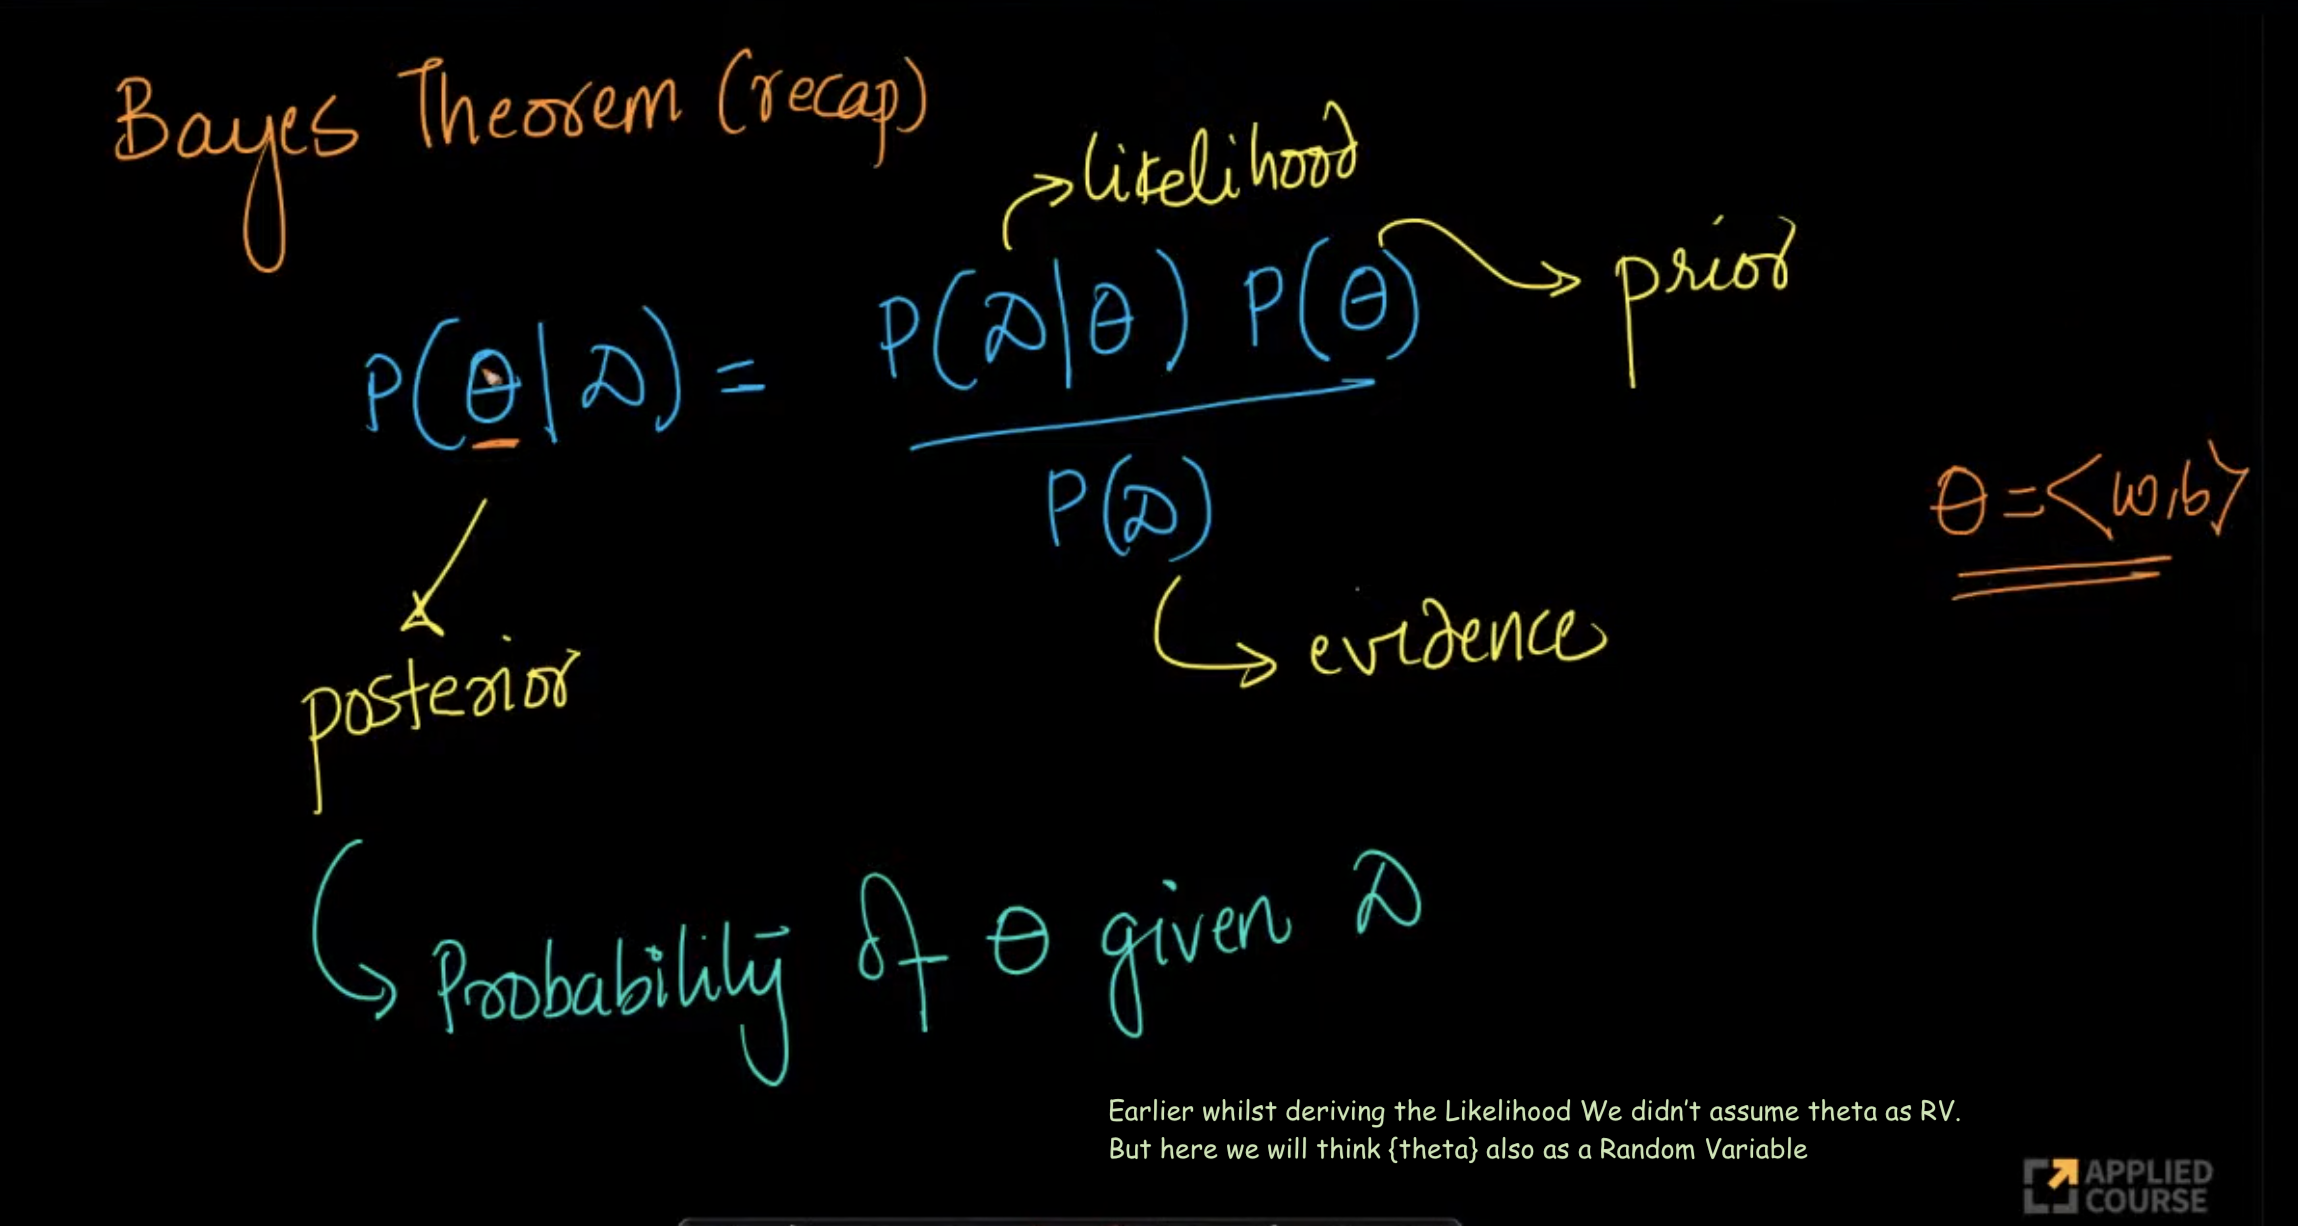 Bayes Theorem (recap)
likelihood
prior
P(θ|D) = P(D|θ) P(θ)
P(D)
θ = <w,b>
evidence
posterior
Probability of θ given D
Earlier whilst deriving the Likelihood We didn't assume theta as RV.
But here we will think {theta} also as a Random Variable
APPLIED
COURSE